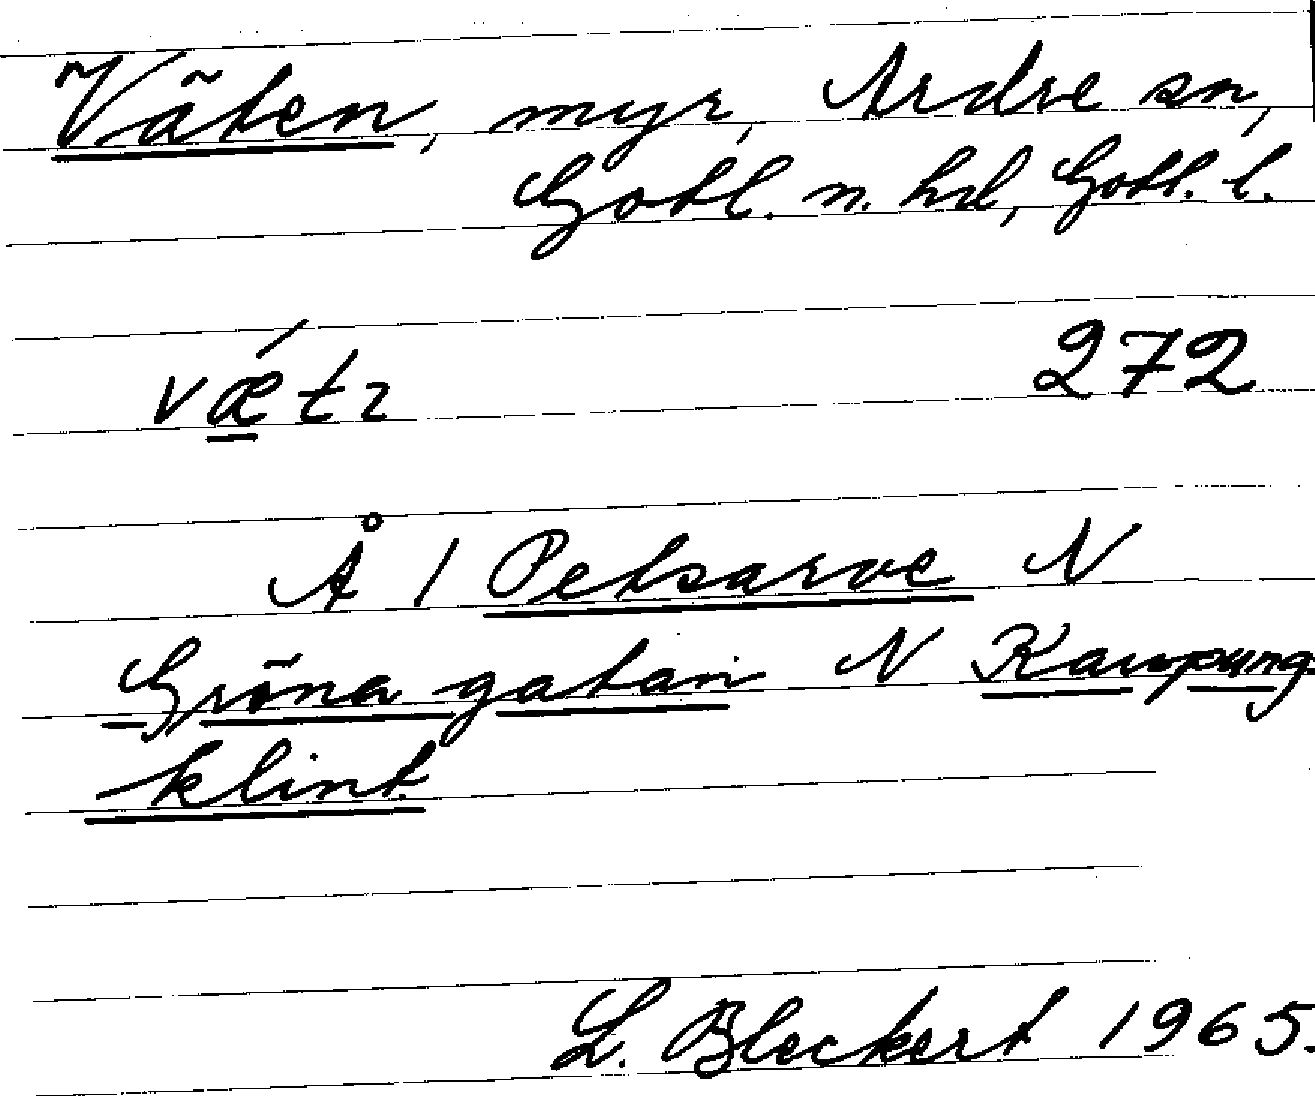 Väten, myr, Ardre sn,
Gotl. n. hd, Gotl. l.
vǽtɿ 272
Å / Petsarve N
Gröna gatan N Kaupung-
klint.
L. Bleckert 1965.